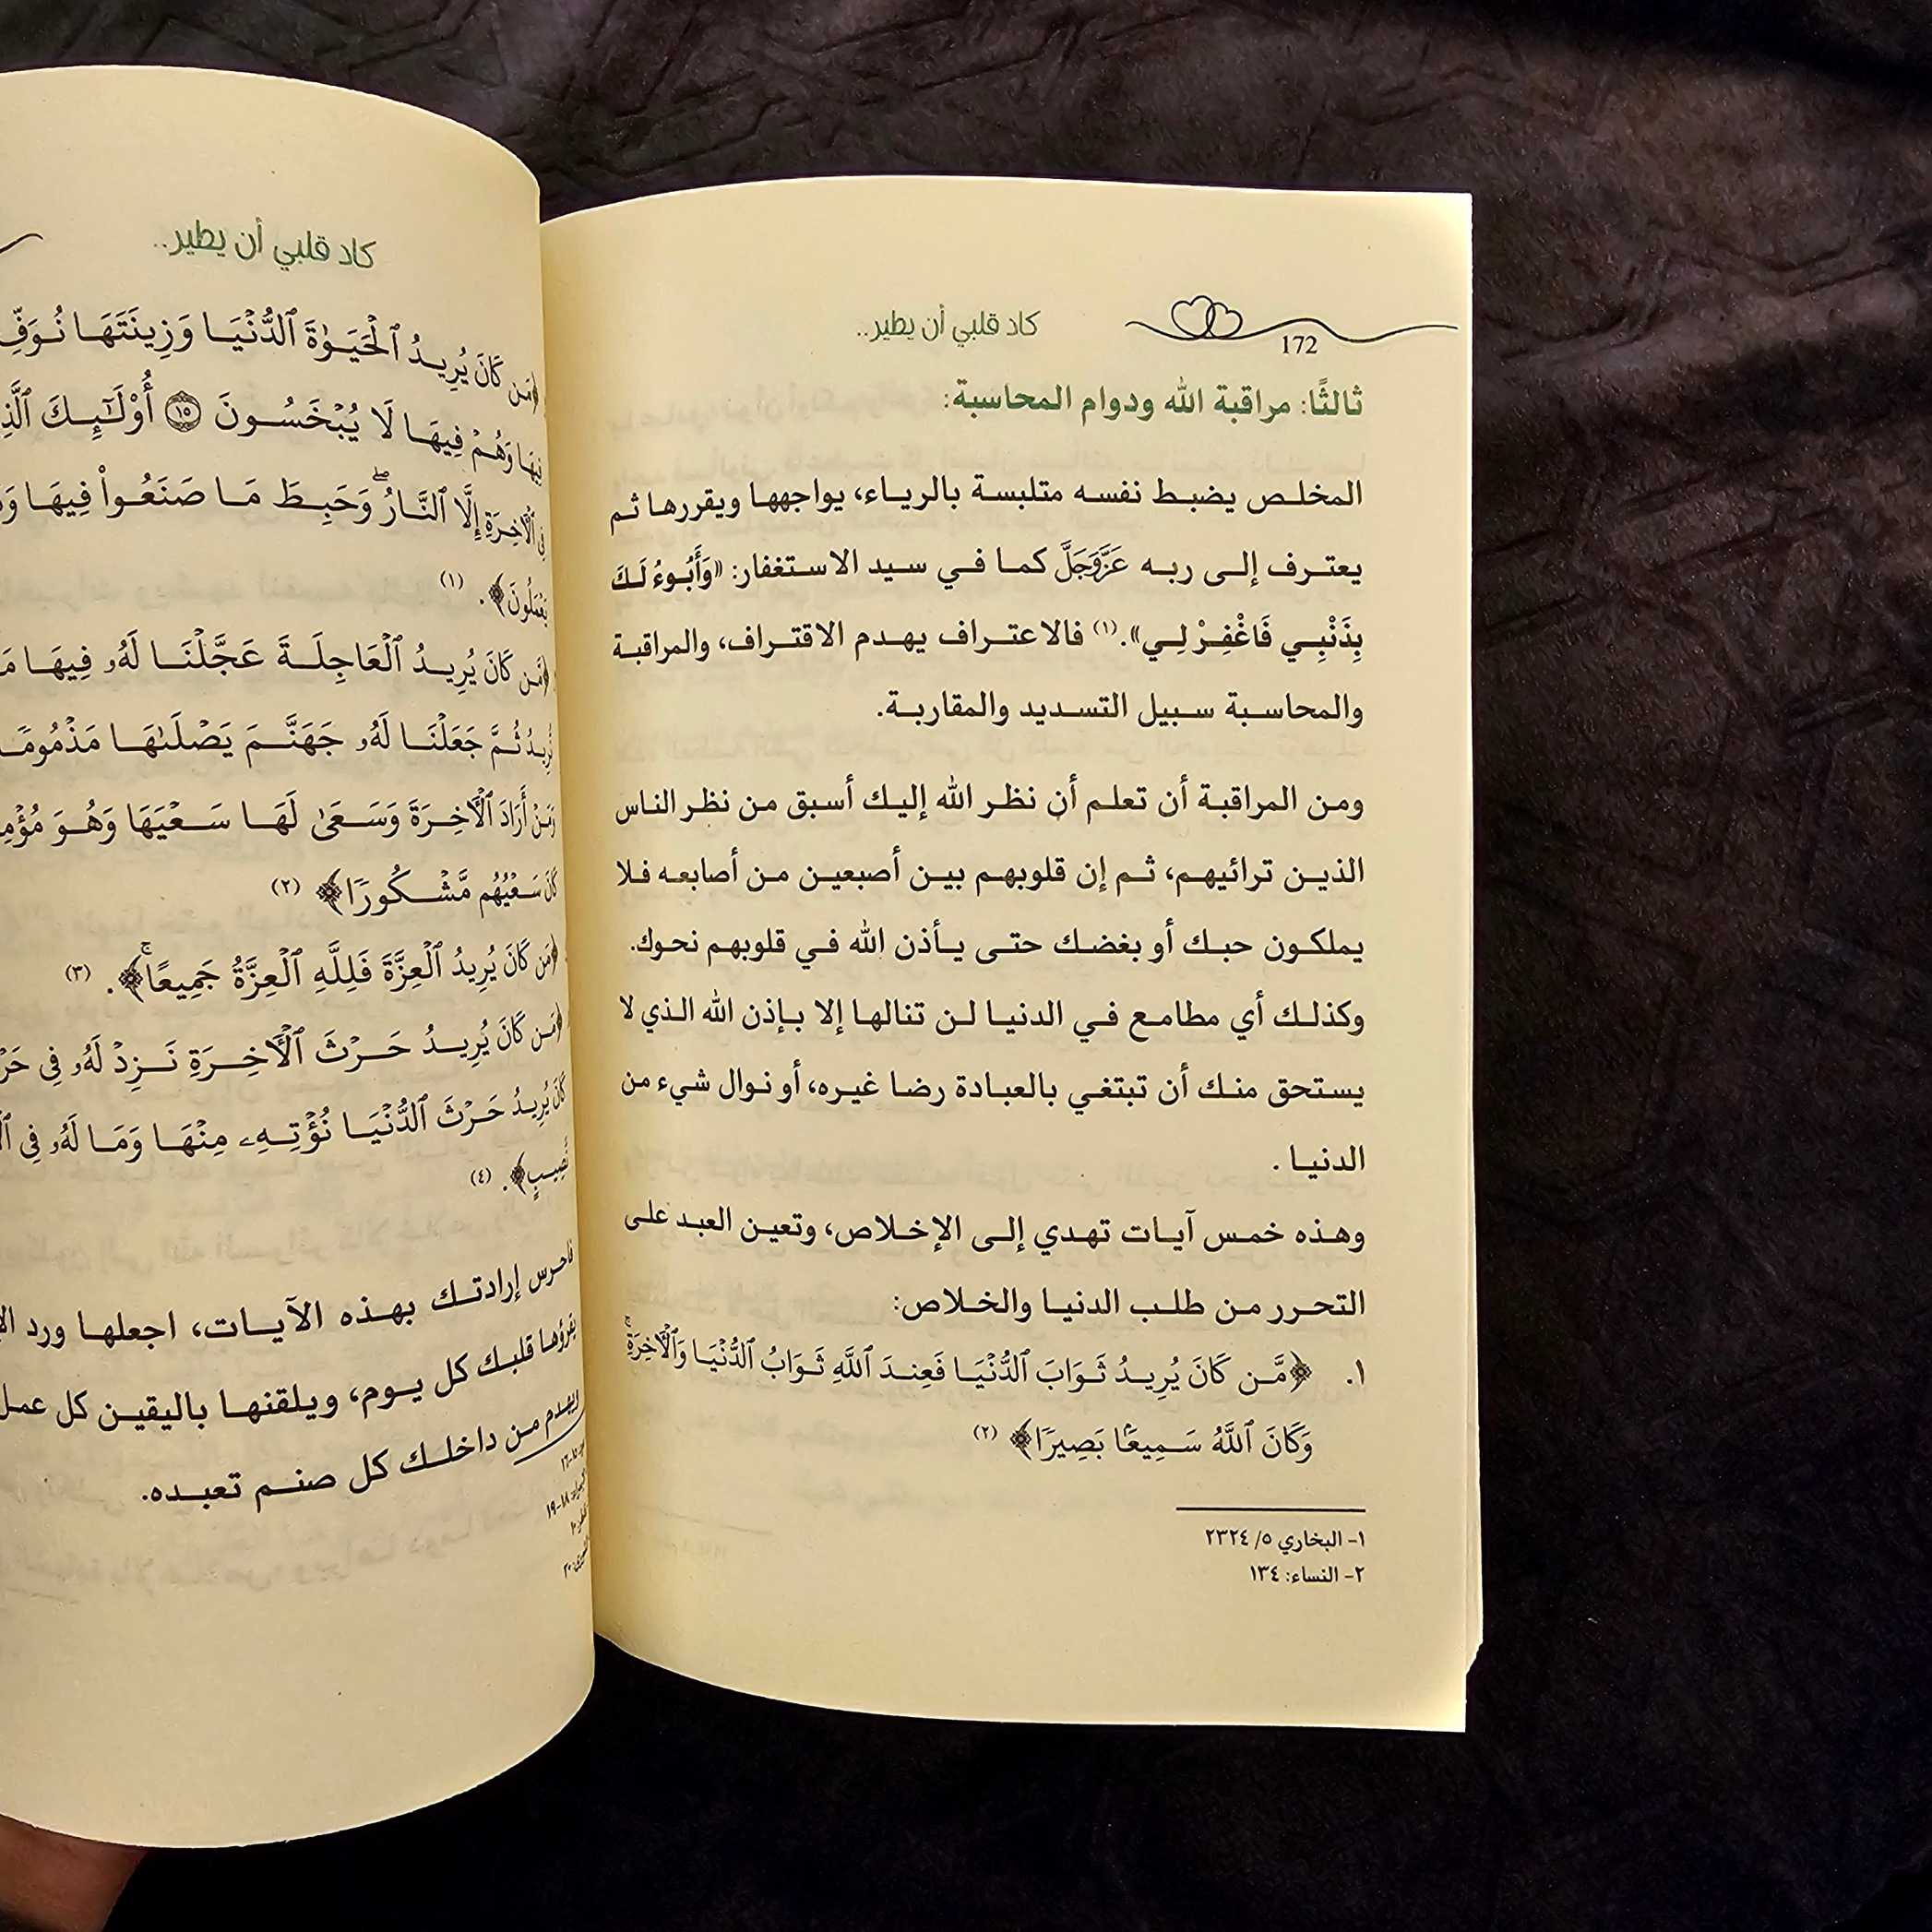 كاد قلبي أن يطير..
172
ثالثًا: مراقبة الله ودوام المحاسبة:
المخلص يضبط نفسه متلبسة بالرياء، يواجهها ويقررها ثم
يعترف إلى ربه عَزَّوَجَلَّ كما في سيد الاستغفار: «وَأَبُوءُ لَكَ
بِذَنْبِي فَاغْفِرْ لِي».(١) فالاعتراف يهدم الاقتراف، والمراقبة
والمحاسبة سبيل التسديد والمقاربة.
ومن المراقبة أن تعلم أن نظر الله إليك أسبق من نظر الناس
الذين ترائيهم، ثم إن قلوبهم بين أصبعين من أصابعه فلا
يملكون حبك أو بغضك حتى يأذن الله في قلوبهم نحوك.
وكذلك أي مطامع في الدنيا لن تنالها إلا بإذن الله الذي لا
يستحق منك أن تبتغي بالعبادة رضا غيره، أو نوال شيء من
الدنيا .
وهذه خمس آيات تهدي إلى الإخلاص، وتعين العبد على
التحرر من طلب الدنيا والخلاص:
١. ﴿مَّن كَانَ يُرِيدُ ثَوَابَ ٱلدُّنْيَا فَعِندَ ٱللَّهِ ثَوَابُ ٱلدُّنْيَا وَٱلْآخِرَةِۚ
وَكَانَ ٱللَّهُ سَمِيعًۢا بَصِيرًا﴾ (٢)
١- البخاري ٥/ ٢٣٢٤
٢- النساء: ١٣٤
كاد قلبي أن يطير..
﴿مَن كَانَ يُرِيدُ ٱلْحَيَوٰةَ ٱلدُّنْيَا وَزِينَتَهَا نُوَفِّ
فِيهَا وَهُمْ فِيهَا لَا يُبْخَسُونَ ١٥ أُوْلَـٰٓئِكَ ٱلَّذِ
فِي ٱلْآخِرَةِ إِلَّا ٱلنَّارُۖ وَحَبِطَ مَا صَنَعُواْ فِيهَا وَ
يَعْمَلُونَ﴾. (١)
﴿مَّن كَانَ يُرِيدُ ٱلْعَاجِلَةَ عَجَّلْنَا لَهُۥ فِيهَا مَ
نُّرِيدُ ثُمَّ جَعَلْنَا لَهُۥ جَهَنَّمَ يَصْلَىٰهَا مَذْمُومًا
وَمَنْ أَرَادَ ٱلْآخِرَةَ وَسَعَىٰ لَهَا سَعْيَهَا وَهُوَ مُؤْمِ
كَانَ سَعْيُهُم مَّشْكُورًا﴾ (٢)
﴿مَن كَانَ يُرِيدُ ٱلْعِزَّةَ فَلِلَّهِ ٱلْعِزَّةُ جَمِيعًاۚ﴾. (٣)
﴿مَن كَانَ يُرِيدُ حَرْثَ ٱلْآخِرَةِ نَزِدْ لَهُۥ فِي حَرْ
كَانَ يُرِيدُ حَرْثَ ٱلدُّنْيَا نُؤْتِهِۦ مِنْهَا وَمَا لَهُۥ فِي
نَّصِيبٍ﴾. (٤)
فاحرس إرادتك بهذه الآيات، اجعلها ورد
يقرؤها قلبك كل يوم، ويلقنها باليقين كل عمل
ويهدم من داخلك كل صنم تعبده.